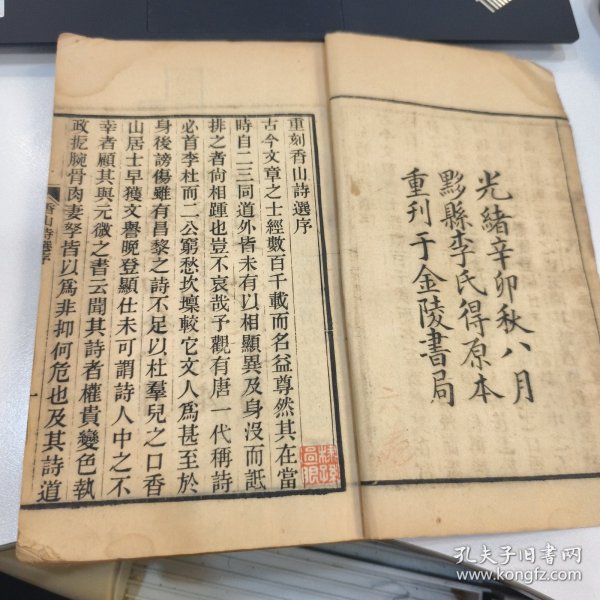 光緒辛卯秋八月
黟縣李氏得原本
重刊于金陵書局
重刻香山詩選序
古今文章之士經數百千載而名益尊然其在當
時自二三同道外皆未有以相顯異及身沒而詆
排之者尙相踵也豈不哀哉予觀有唐一代稱詩
必首李杜而二公窮愁坎壈較它文人爲甚至於
身後謗傷雖有昌黎之詩不足以杜羣兒之口香
山居士早獲文譽晚登顯仕未可謂詩人中之不
幸者顧其與元微之書云聞其詩者權貴變色執
政扼腕骨肉妻孥皆以爲非抑何危也及其詩道
香山詩選序
孔夫子旧书网
www.kongfz.com